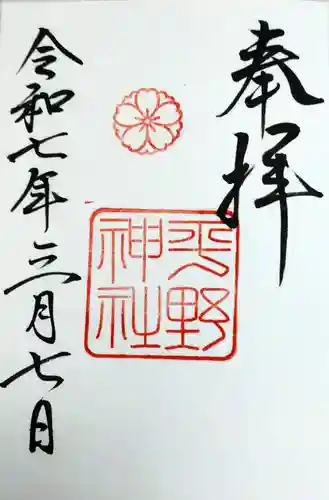 奉拝
平野
神社
令和七年三月七日